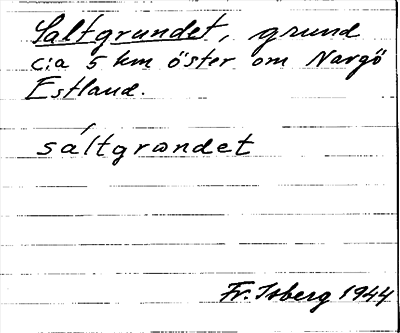 Saltgrundet, grund
c:a 5 km öster om Nargö
Estland.
sáltgrɷndet
Fr. Isberg 1944